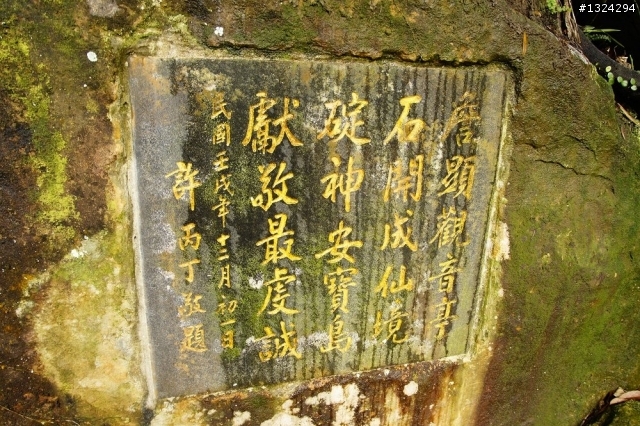 詹顯觀音亭
石開成仙境
碇神安寶島
獻敬最虔誠
民國壬戌年十二月初一日
許丙丁敬題
#1324294